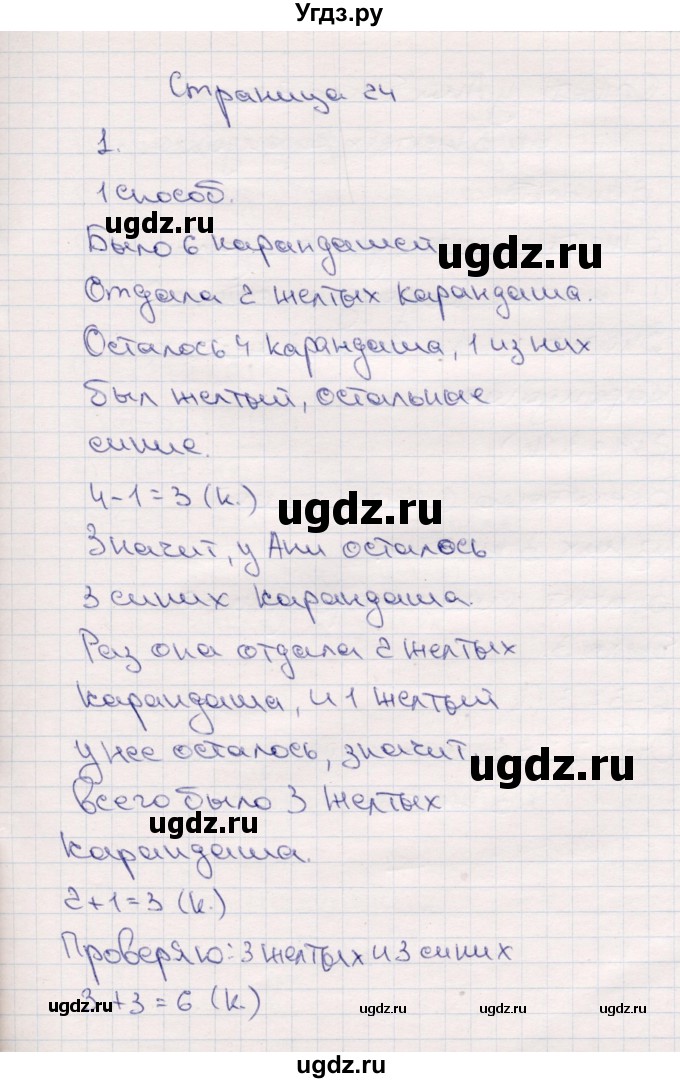 Угдз.ру
Страница 24
1.
1 способ.
ugdz.ru
Было 6 карандашей
ugdz.ru
Отдала 2 желтых карандаша.
Осталось 4 карандаша, 1 из них
был желтый, остальные
синие.
4-1=3 (к.)
ugdz.ru
Значит, у Ани осталось
3 синих карандаша.
Раз она отдала 2 желтых
карандаша, и 1 желтый
у нее осталось, значит,
ugdz.ru
всего было 3 желтых
ugdz.ru
карандаша.
2+1=3 (к.)
Проверяю: 3 желтых и 3 синих
3+3=6 (к.)
ugdz.ru ugdz.ru ugdz.ru ugdz.ru
ugdz.ru